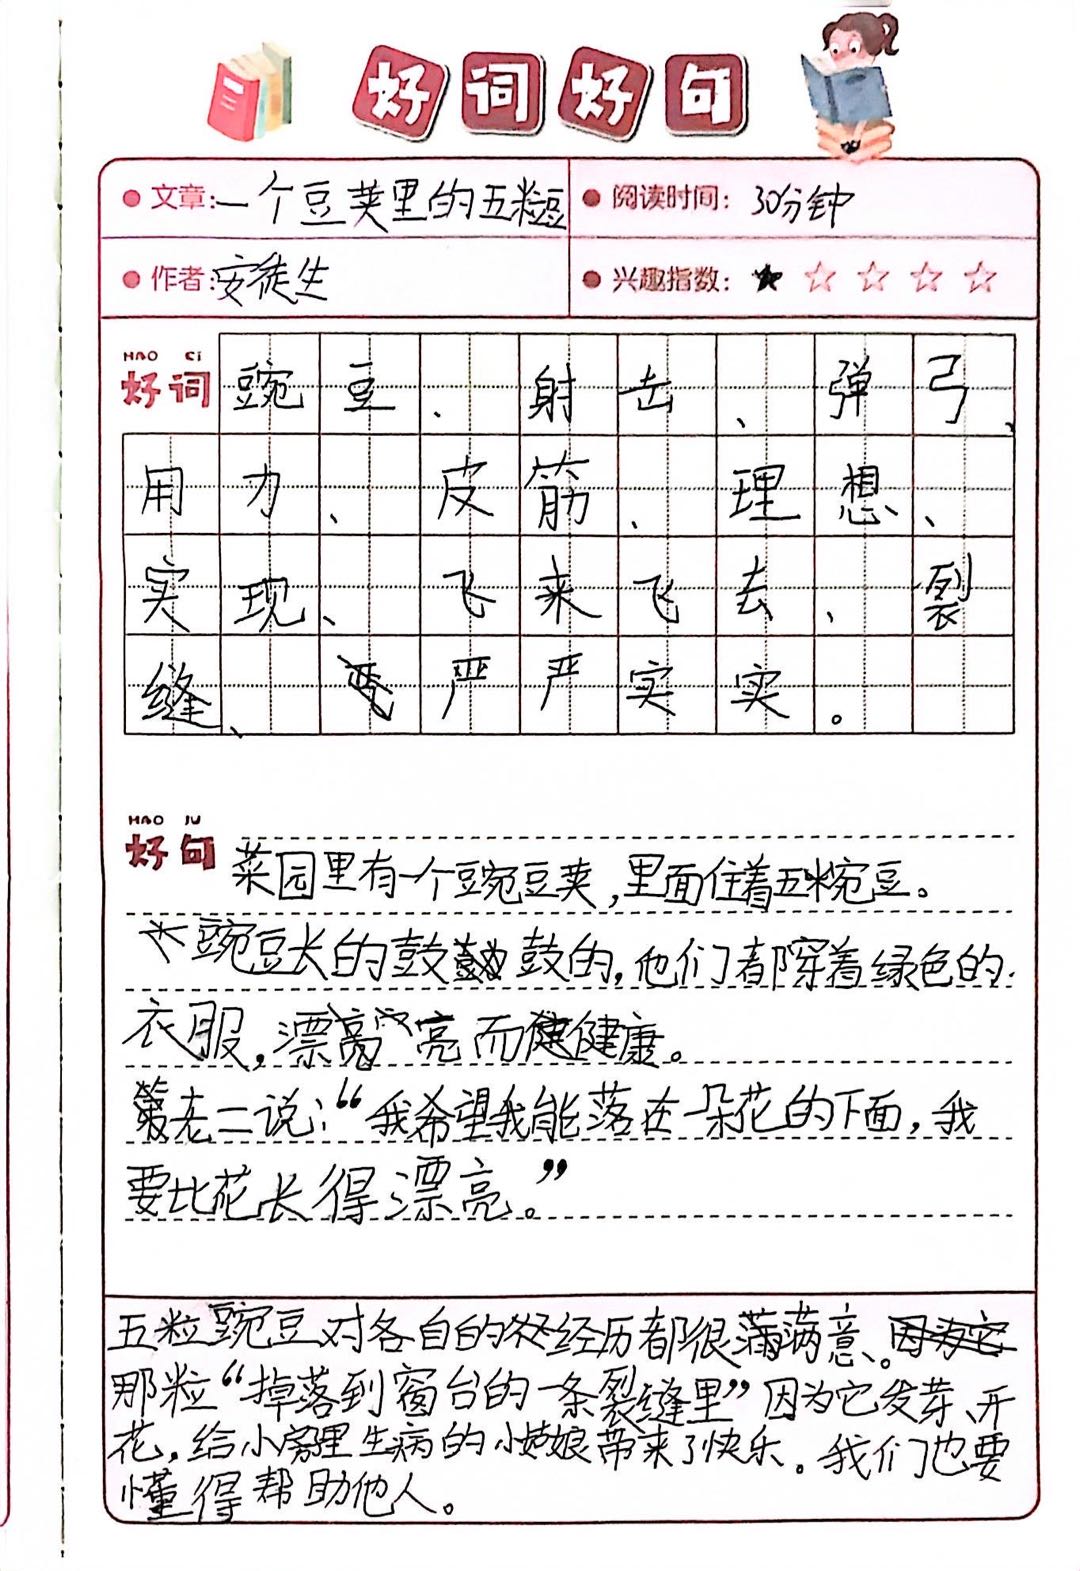 好词好句
文章:一个豆荚里的五粒豆
阅读时间: 30分钟
作者:安徒生
兴趣指数: ★☆☆☆☆
HAO CI
好词
豌豆、射击、弹弓、
用力、皮筋、理想、
实现、飞来飞去、裂
缝、严严实实。
HAO JU
好句
菜园里有一个豌豆荚,里面住着五粒豌豆。
豌豆长的鼓鼓的,他们都穿着绿色的
衣服,漂亮而健康。
老二说:“我希望我能落在一朵花的下面,我
要比花长得漂亮。”
五粒豌豆对各自的经历都很满意。
那粒“掉落到窗台的一条裂缝里”因为它发芽、开
花,给小房里生病的小姑娘带来了快乐。我们也要
懂得帮助他人。